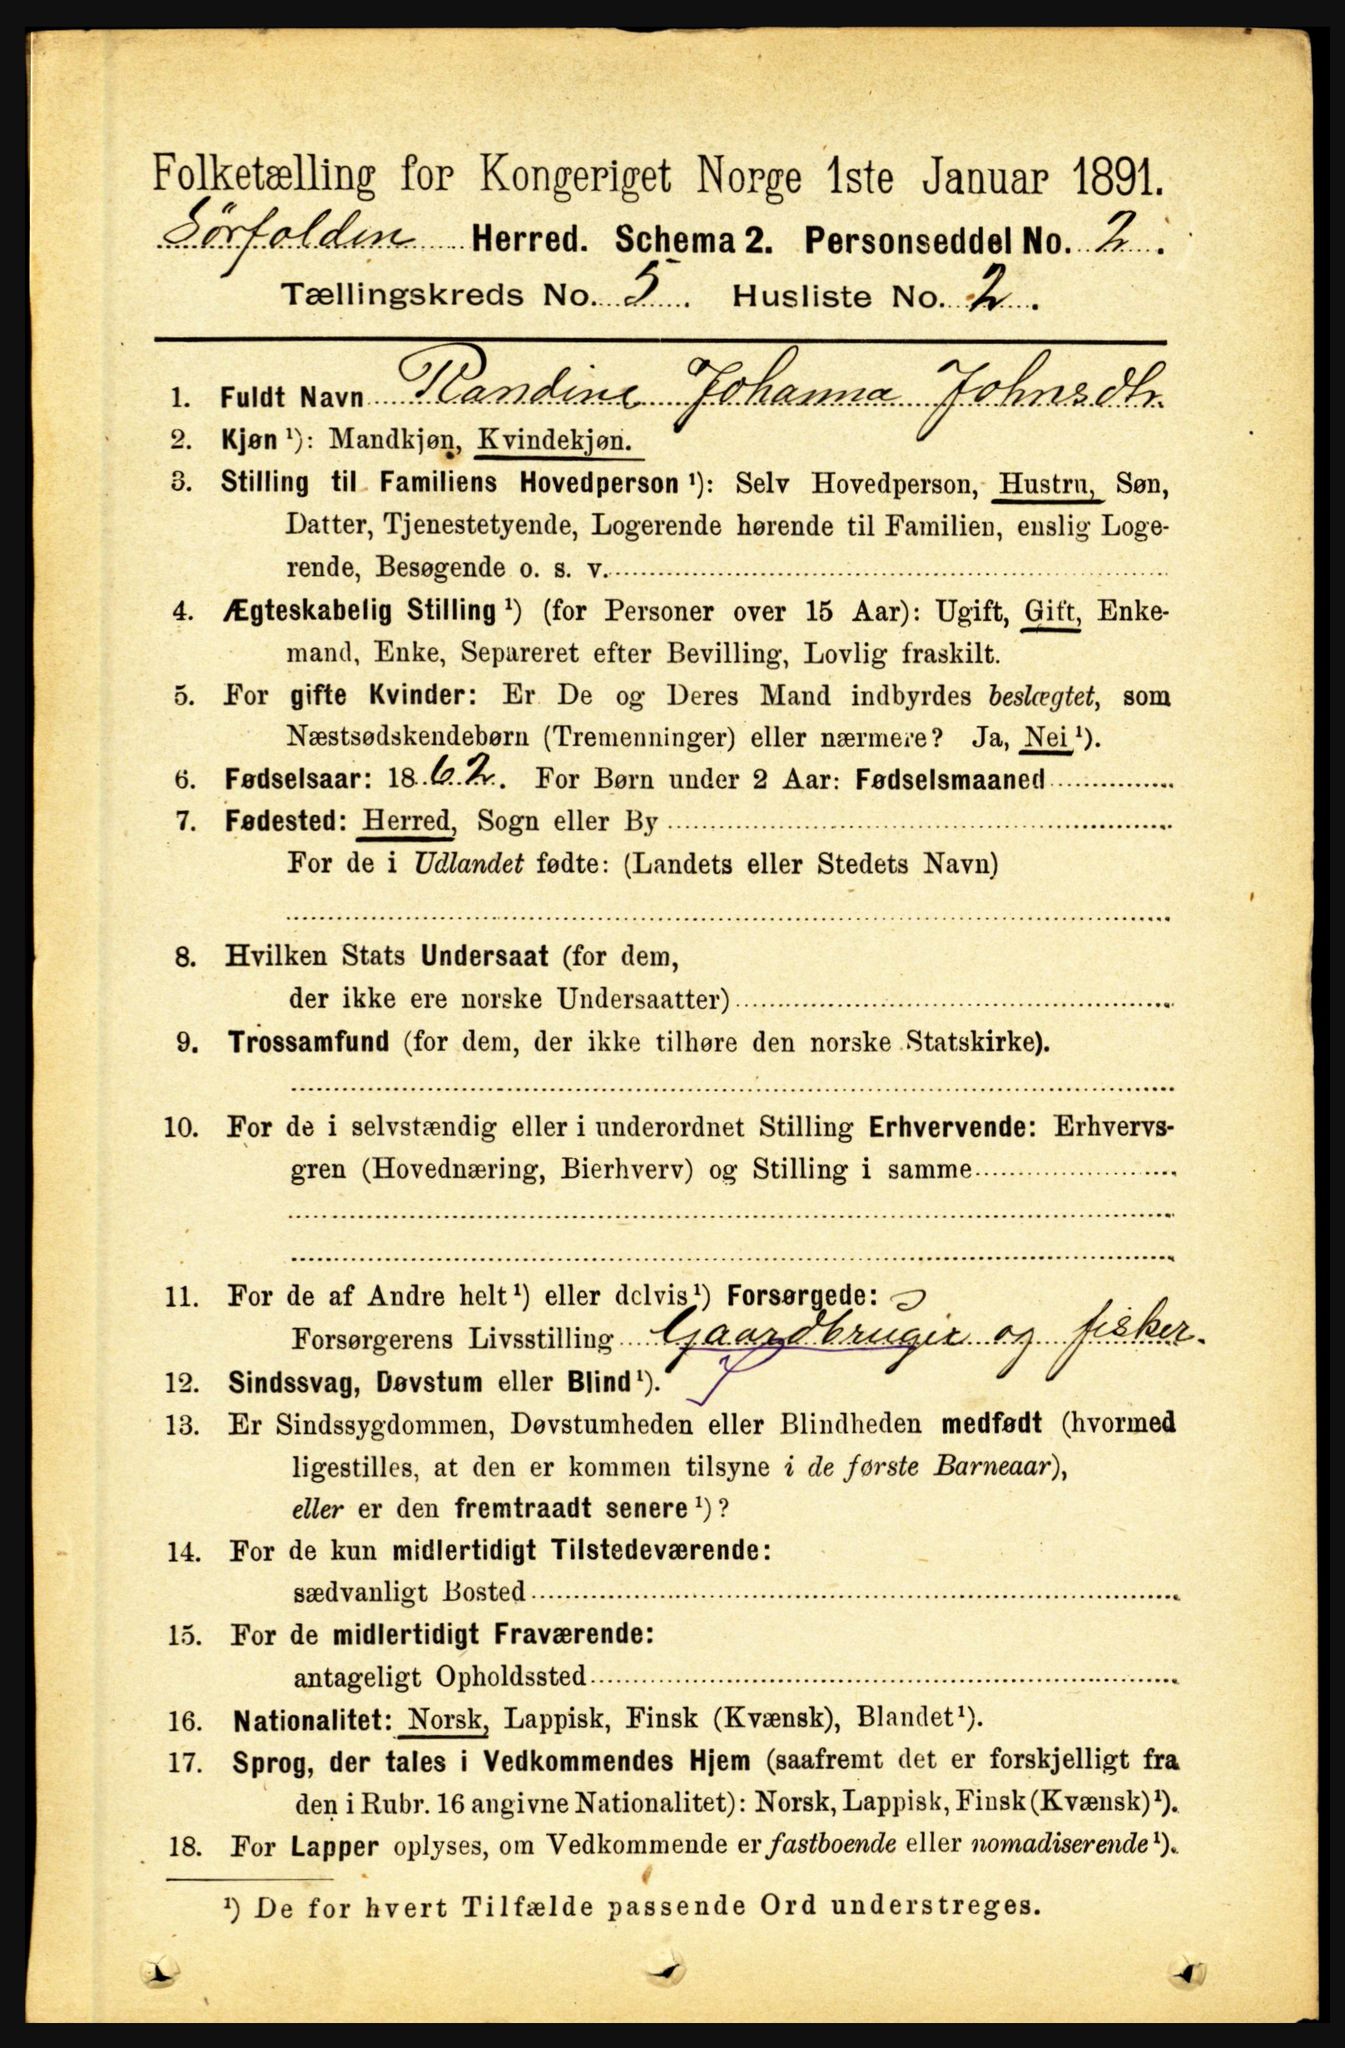 Folketælling for Kongeriget Norge 1ste Januar 1891.
Sörfolden Herred. Schema 2. Personseddel No. 2.
Tællingskreds No. 5. Husliste No. 2.
1. Fuldt Navn Randine Johanna Johnsdtr.
2. Kjøn ¹): Mandkjøn, Kvindekjøn.
3. Stilling til Familiens Hovedperson ¹): Selv Hovedperson, Hustru, Søn,
Datter, Tjenestetyende, Logerende hørende til Familien, enslig Loge-
rende, Besøgende o. s. v.
4. Ægteskabelig Stilling ¹) (for Personer over 15 Aar): Ugift, Gift, Enke-
mand, Enke, Separeret efter Bevilling, Lovlig fraskilt.
5. For gifte Kvinder: Er De og Deres Mand indbyrdes beslægtet, som
Næstsødskendebørn (Tremenninger) eller nærmere? Ja, Nei ¹).
6. Fødselsaar: 1862. For Børn under 2 Aar: Fødselsmaaned
7. Fødested: Herred, Sogn eller By
For de i Udlandet fødte: (Landets eller Stedets Navn)
8. Hvilken Stats Undersaat (for dem,
der ikke ere norske Undersaatter)
9. Trossamfund (for dem, der ikke tilhøre den norske Statskirke).
10. For de i selvstændig eller i underordnet Stilling Erhvervende: Erhvervs-
gren (Hovednæring, Bierhverv) og Stilling i samme
11. For de af Andre helt ¹) eller delvis ¹) Forsørgede:
Forsørgerens Livsstilling Gaardbruger og fisker.
12. Sindssvag, Døvstum eller Blind ¹).
13. Er Sindssygdommen, Døvstumheden eller Blindheden medfødt (hvormed
ligestilles, at den er kommen tilsyne i de første Barneaar),
eller er den fremtraadt senere ¹)?
14. For de kun midlertidigt Tilstedeværende:
sædvanligt Bosted
15. For de midlertidigt Fraværende:
antageligt Opholdssted
16. Nationalitet: Norsk, Lappisk, Finsk (Kvænsk), Blandet ¹).
17. Sprog, der tales i Vedkommendes Hjem (saafremt det er forskjelligt fra
den i Rubr. 16 angivne Nationalitet): Norsk, Lappisk, Finsk (Kvænsk) ¹).
18. For Lapper oplyses, om Vedkommende er fastboende eller nomadiserende ¹).
¹) De for hvert Tilfælde passende Ord understreges.